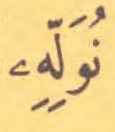 نُوَلِّهِۦ